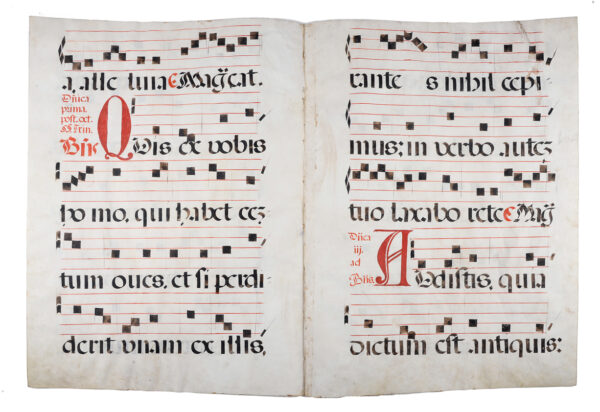 a, alle luia e Mag̃cat.
Dñica
prima.
post. oct.
Trin.
Bñs QVis ex vobis
ho mo, qui habet cez
tum oues, et si perdi-
derit vnam ex illis,
rante s nihil cepi-
mus; in verbo autez
tuo laxabo rete e Mag̃
Dñica
iij.
ad
Bñs. AVdistis, quia
dictum est antiquis: